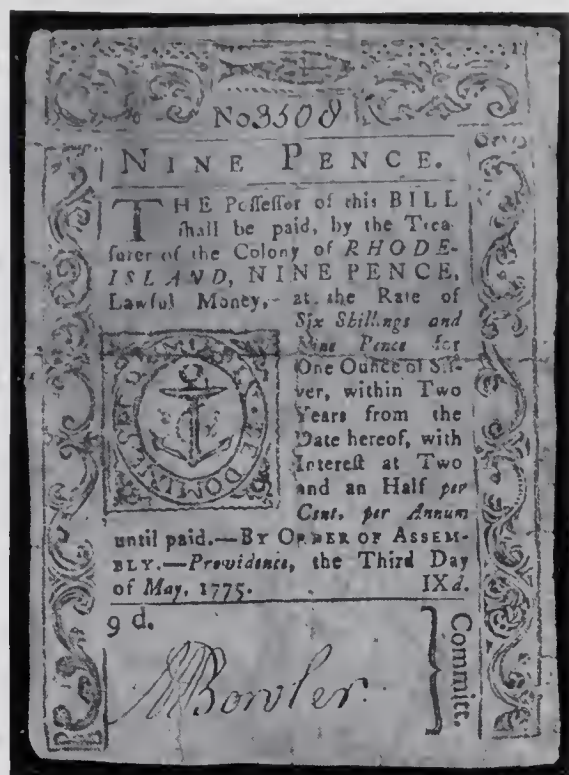 No 3508
NINE PENCE.
THE Poſſeſſor of this BILL
ſhall be paid, by the Trea-
ſurer of the Colony of RHODE-
ISLAND, NINE PENCE,
Lawful Money, at the Rate of
Six Shillings and
Nine Pence for
One Ounce of Sil-
ver, within Two
Years from the
Date hereof, with
Intereſt at Two
and an Half per
Cent. per Annum
until paid.—BY ORDER OF ASSEM-
BLY.—Providence, the Third Day
of May, 1775. IXd.
IN TE DOMINE
9 d.
Bowler
Committ.